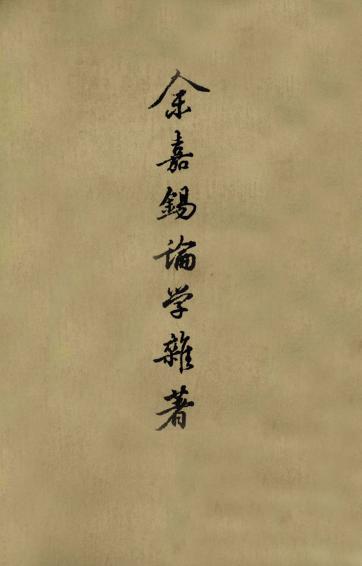 余嘉錫論学雜著